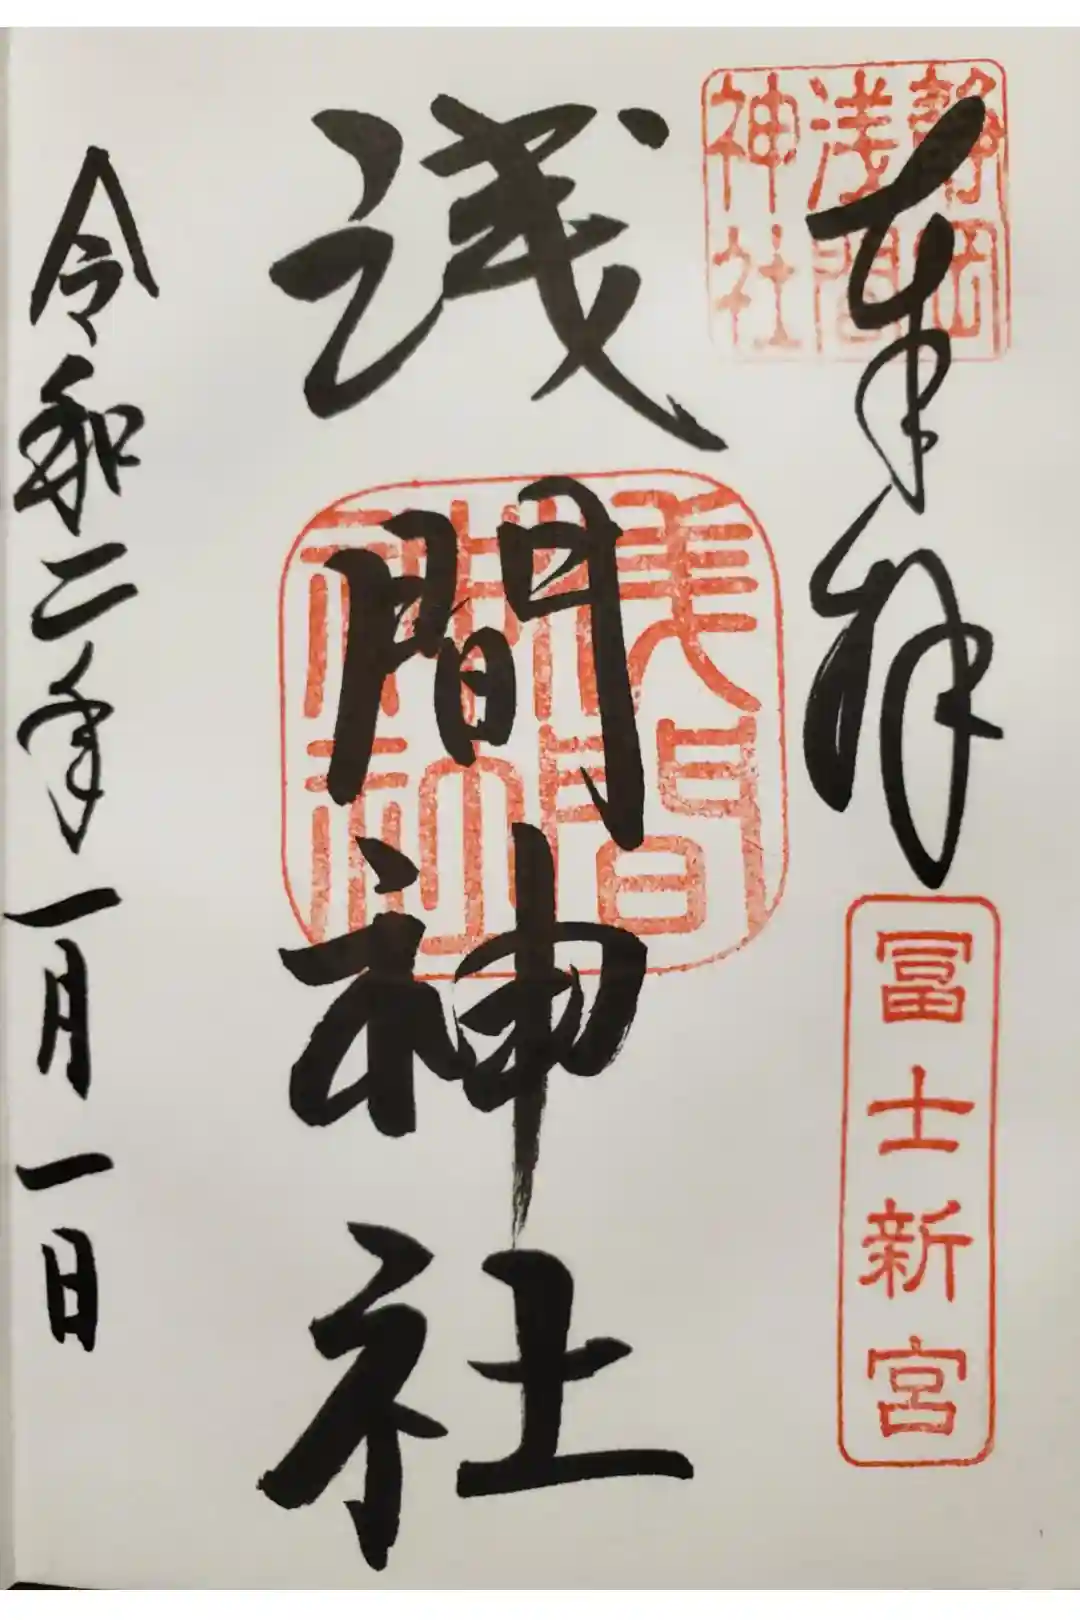 奉拝
静岡
浅間
神社
冨士新宮
浅間神社
浅間
神社
令和二年一月一日